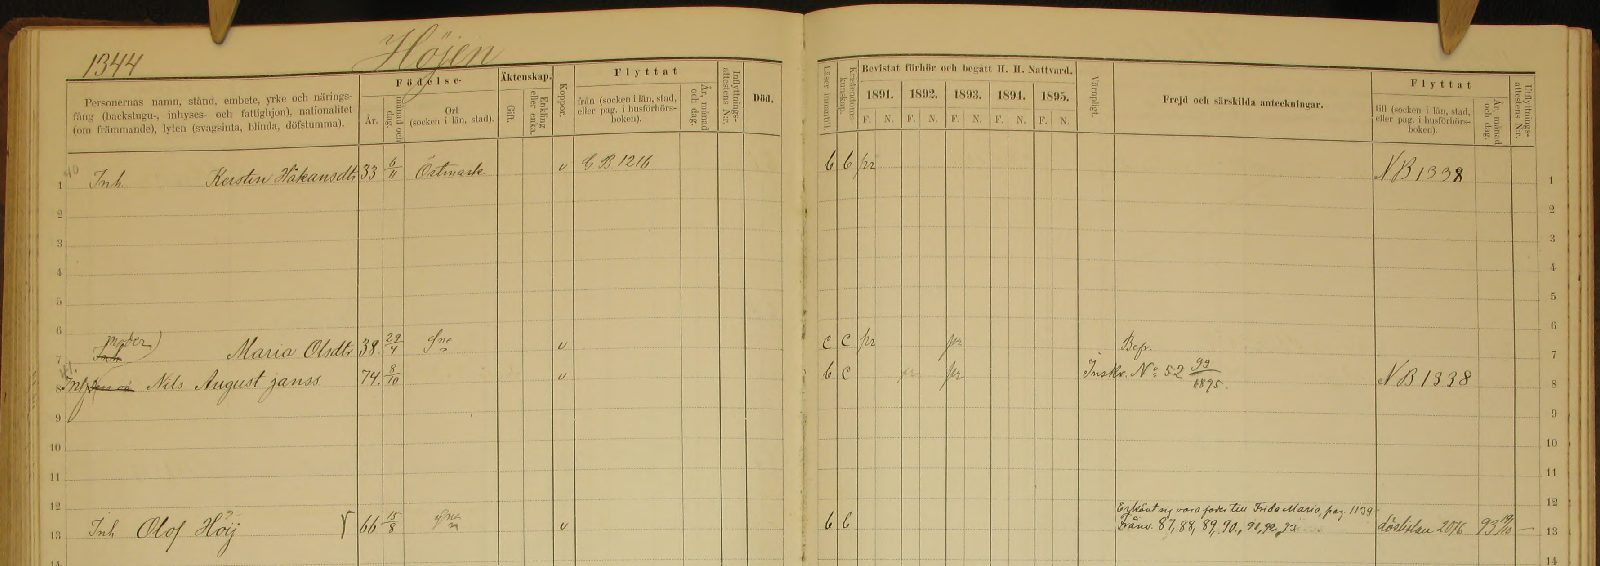 1344
Höjen
Personernas namn, stånd, embete, yrke och närings-
fång (backstugu-, inhyses- och fattighjon), nationalitet
(om främmande), lyten (svagsinta, blinda, döfstumma).
Födelse-
År.
månad och dag.
Ort
(socken i län, stad).
Äktenskap.
Gift.
Enkling eller enka.
Koppor.
Flyttat
från (socken i län, stad,
eller pag. i husförhörs-
boken).
År, månad och dag.
Inflyttnings-attestens Nr.
Död.
Kristendoms kunskap.
Bevistat förhör och begått H. H. Nattvard.
1891. 1892. 1893. 1894. 1895.
F. N. F. N. F. N. F. N. F. N.
Värnpligt.
Frejd och särskilda anteckningar.
Flyttat
till (socken i län, stad,
eller pag. i husförhörs-
boken).
År, månad och dag.
Utflyttnings-attestens Nr.
1 Inh. Kerstin Håkansdtr 33 6/11 Östmark v B 1216 pr N B 1338 1
2 2
3 3
4 4
5 5
6 6
7 moder) Inh Maria Olsdtr 38. 22/4 v c c pr pr Befr. 7
8 Nils August Janss. 74. 8/10 v c pr Inskr. No 52 93/1895. N B 1338 8
9 9
10 10
11 11
12 12
13 Inh Olof Höij 66 15/8 v Erkänt sig vara fader till Frida Maria pag. 1139
Frånv. 87, 88, 89, 90, 91, 92, 93 2076 93 13
14 14